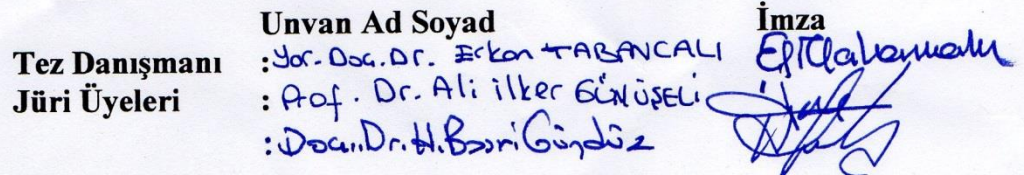 Unvan Ad Soyad İmza
Tez Danışmanı : Yar. Doç. Dr. Erkan TABANCALI
Jüri Üyeleri : Prof. Dr. Ali ilker GÜMÜŞELİ
: Doç. Dr. H. Basri Gündüz